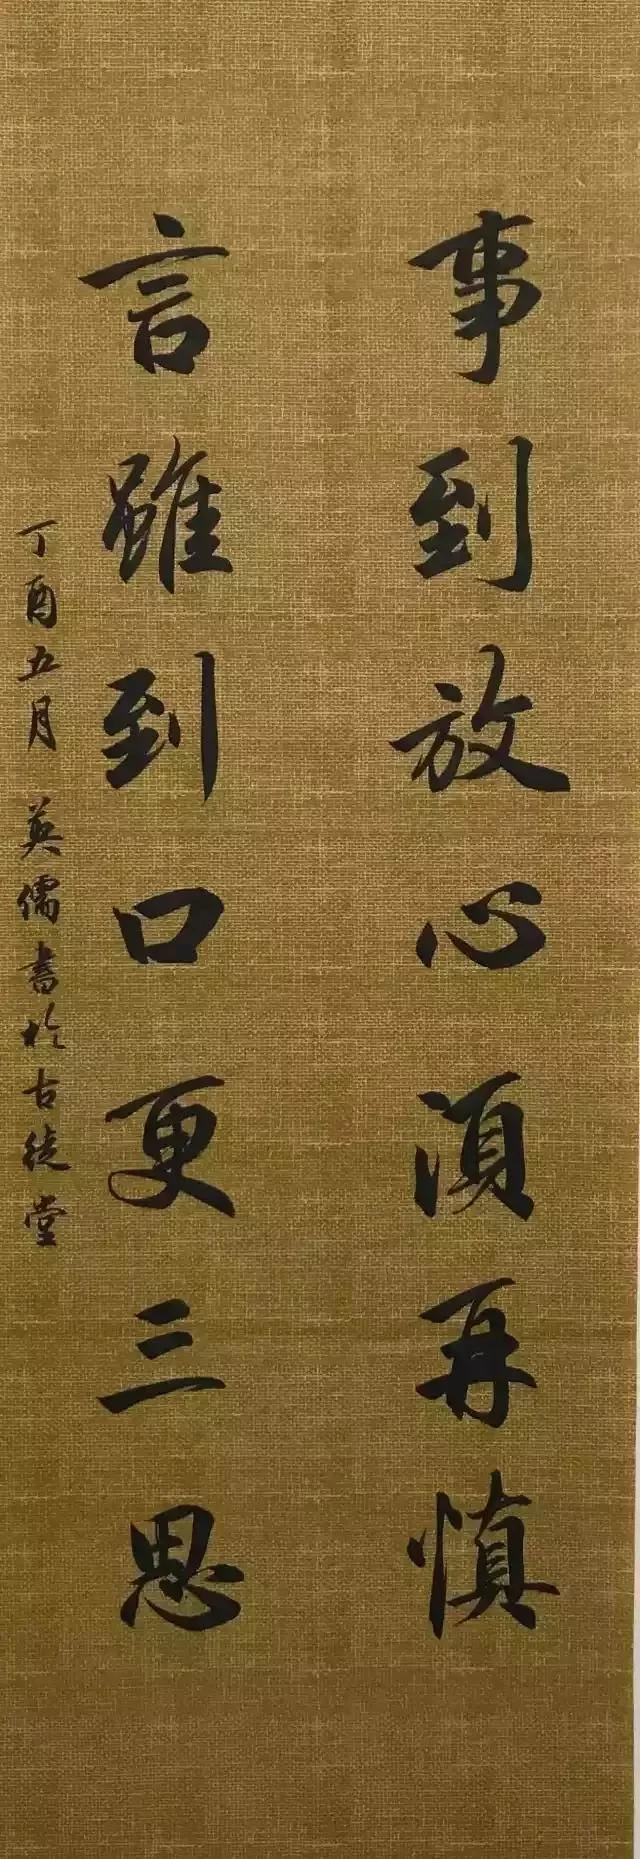 事到放心須再慎
言雖到口更三思
丁酉五月 英儒書於古徒堂